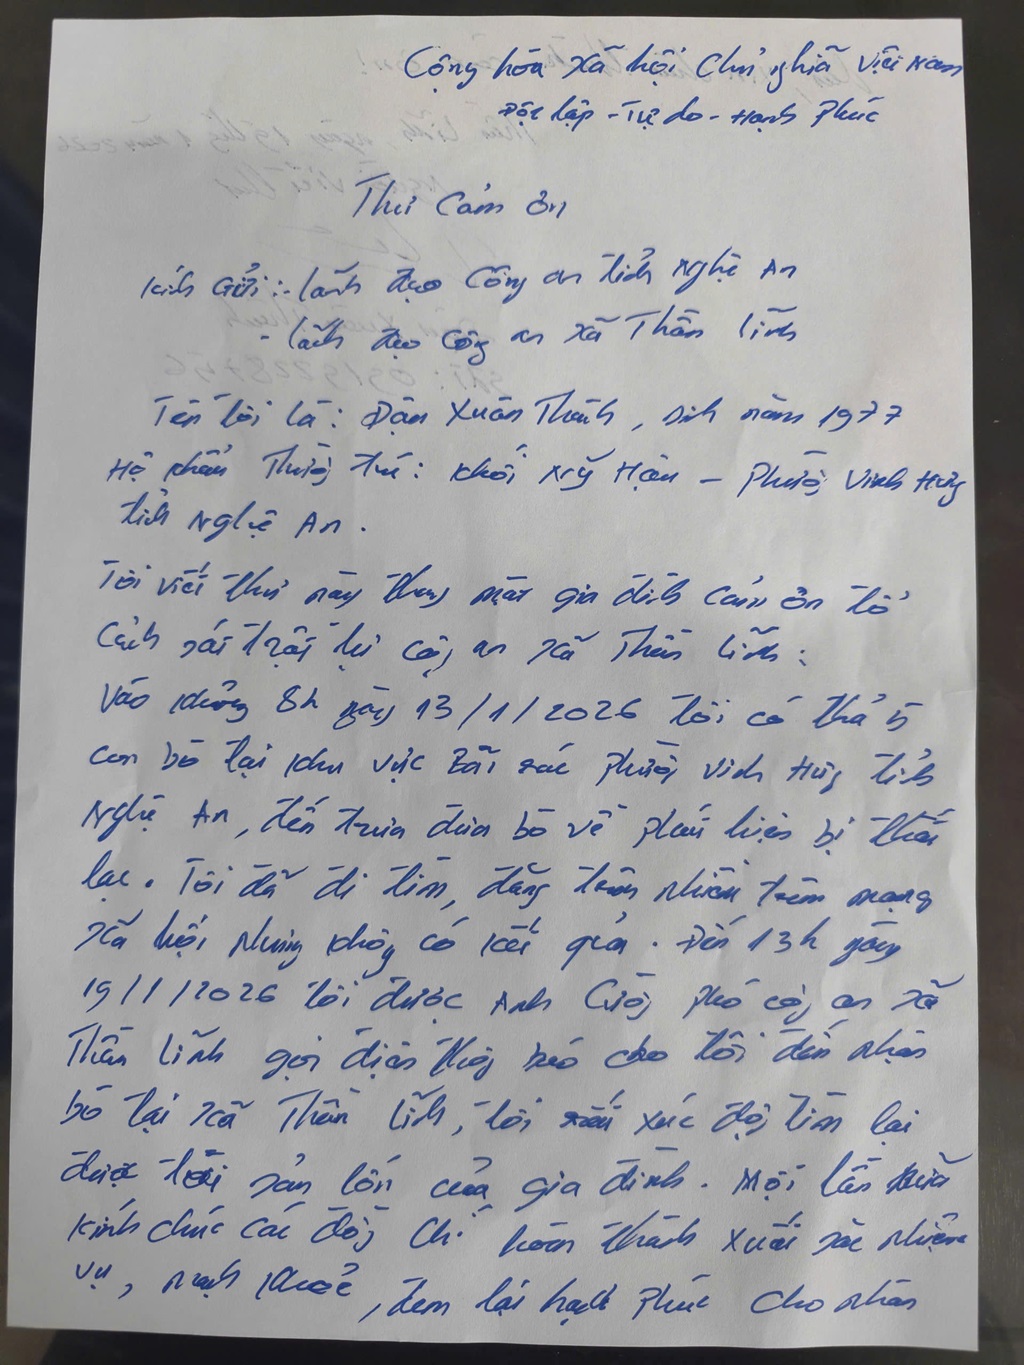 Cộng hòa Xã hội Chủ nghĩa Việt Nam
Độc lập - Tự do - Hạnh Phúc
Thư Cảm ơn
Kính Gửi: - Lãnh đạo Công an tỉnh Nghệ An
- Lãnh đạo Công an xã Thần Lĩnh
Tên tôi là: Đậu Xuân Thành, sinh năm 1977
Hộ khẩu Thường trú: Khối Mỹ Hậu - Phường Vinh Hưng
tỉnh Nghệ An.
Tôi viết thư này thay mặt gia đình cảm ơn tổ
Cảnh sát trật tự công an xã Thần Lĩnh:
Vào khoảng 8h ngày 13/1/2026 tôi có thả 5
con bò tại khu vực Bãi rác phường Vinh Hưng tỉnh
Nghệ An, đến trưa đưa bò về phát hiện bị thất
lạc. Tôi đã đi tìm, đăng trên nhiều trên mạng
xã hội nhưng không có kết quả. Đến 13h ngày
19/1/2026 tôi được Anh Cường phó công an xã
Thần Lĩnh gọi điện thông báo cho tôi đến nhận
bò tại xã Thần Lĩnh, tôi rất xúc động tìm lại
được tài sản lớn của gia đình. Một lần nữa
kính chúc các đồng chí hoàn thành xuất sắc nhiệm
vụ, mạnh khoẻ, đem lại hạnh phúc cho nhân